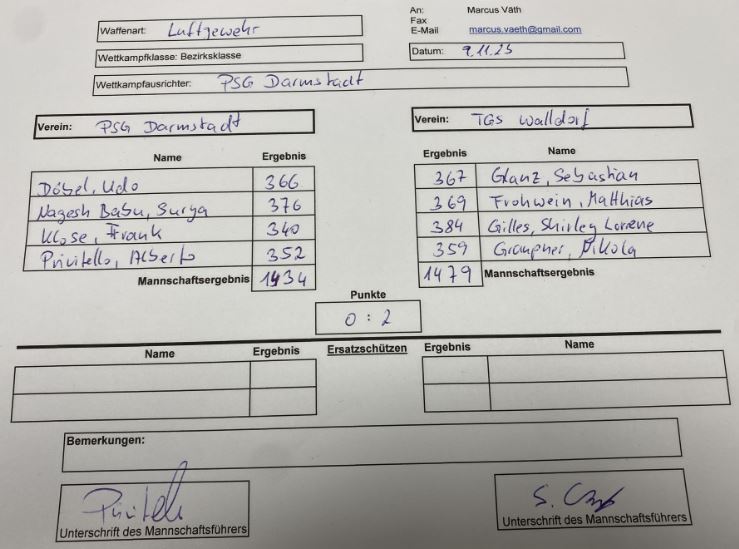 An: Marcus Väth
Fax
Waffenart: Luftgewehr
E-Mail marcus.vaeth@gmail.com
Wettkampfklasse: Bezirksklasse
Datum: 9.11.25
Wettkampfausrichter: PSG Darmstadt
Verein: PSG Darmstadt
Verein: TGS Walldorf
Name Ergebnis
Ergebnis Name
Döbel, Udo 366
367 Glanz, Sebastian
Nagesh Babu, Surya 376
369 Frohwein, Matthias
Klose, Frank 340
384 Gilles, Shirley Lorene
Privitello, Alberto 352
359 Graupner, Nikola
Mannschaftsergebnis 1434
1479 Mannschaftsergebnis
Punkte
0 : 2
Name Ergebnis Ersatzschützen Ergebnis Name
Bemerkungen:
Unterschrift des Mannschaftsführers
Unterschrift des Mannschaftsführers